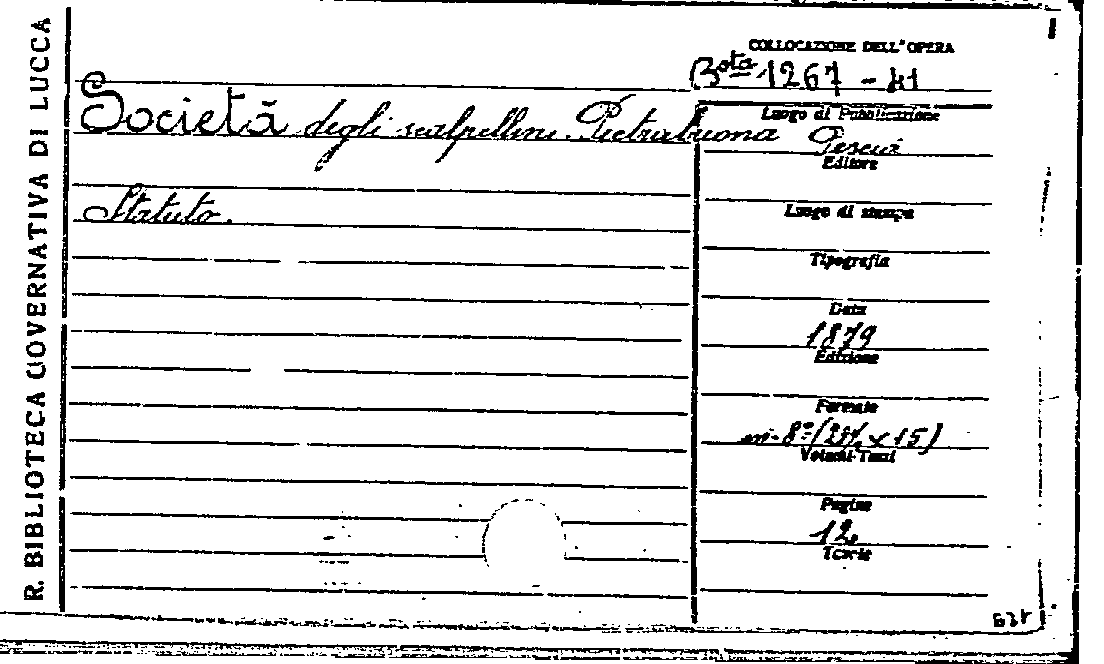 R. BIBLIOTECA GOVERNATIVA DI LUCCA
COLLOCAZIONE DELL'OPERA
B<sup>sta</sup> 1267 - 41
Società degli scalpellini. Pietrabuona
Luogo di Pubblicazione
Pescia
Editore
Statuto.
Luogo di stampa
Tipografia
Data
1879
Edizione
Formato
in-8° x 15)
Volumi-Tomi
Pagine
12
Tavole